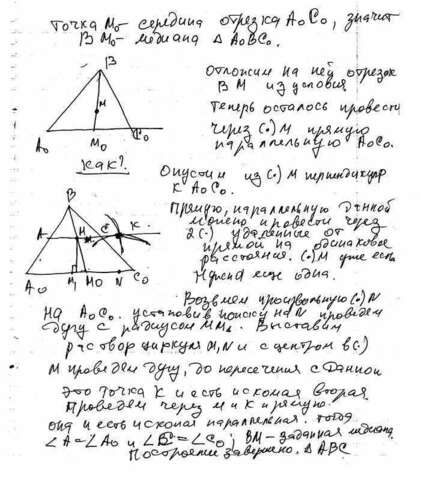 Точка M₀ - середина отрезка A₀C₀, значит
BM₀ - медиана △ A₀BC₀.
B
M
A₀
M₀
C₀
Отложим на ней отрезок
BM из условия
Теперь осталось провести
через (·) M прямую
параллельную A₀C₀.
Как?
Опустим из (·) M перпендикуляр
к A₀C₀.
B
A
M
C
K
A₀
M₁
M₀
N
C₀
Прямую, параллельную данной
можно провести через
2 (·) удаленные от
прямой на одинаковое
расстояние. (·) M уже есть
Нужна еще одна.
Возьмем произвольную (·) N
на A₀C₀. установив ножку на N проведем
дугу с радиусом MM₁. Выставим
раствор циркуля M₁N и с центром в (·)
M проведем дугу, до пересечения с данной
это точка K и есть искомая вторая.
Проведем через M и K прямую.
она и есть искомая параллельная. тогда
∠A=∠A₀ и ∠C=∠C₀; BM - заданная медиана.
Построение завершено. △ ABC